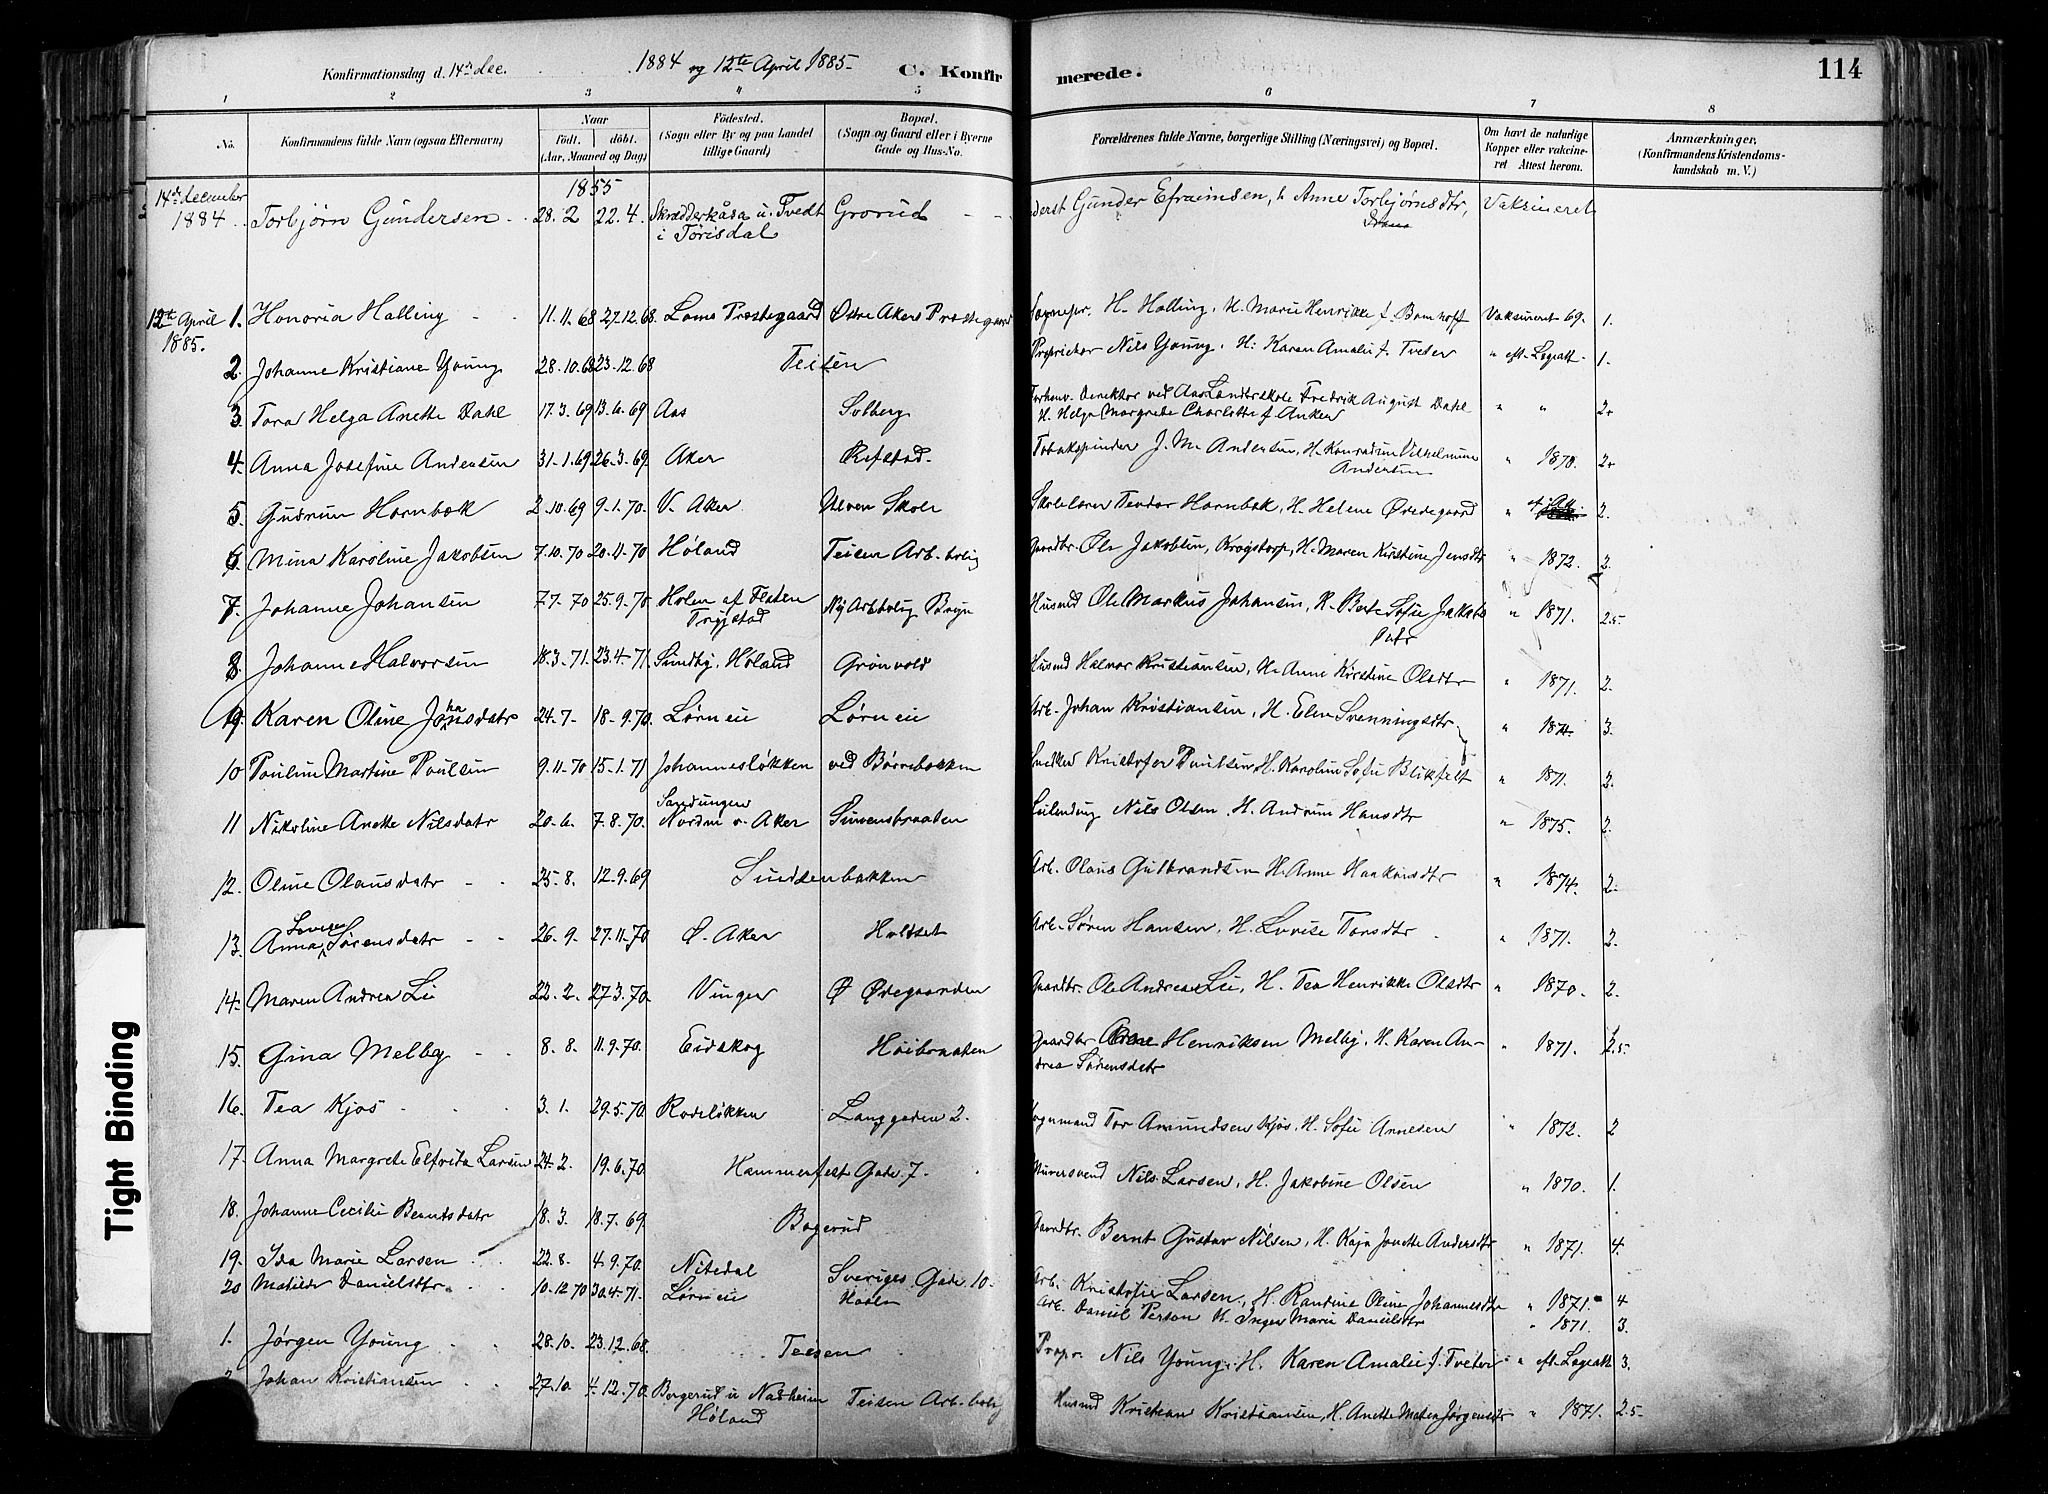 Konfirmationsdag d. 14de dec. 1884 og 12te April 1885. C. Konfirmerede. 114
1 2 3 4 5 6 7 8
No. Konfirmandens fulde Navn (ogsaa Efternavn) Naar født. døbt. (Aar, Maaned og Dag) Fødested. (Sogn eller By og paa Landet tillige Gaard) Bopæl. (Sogn og Gaard eller i Byerne Gade og Hus-No. Forældrenes fulde Navne, borgerlige Stilling (Næringsvei) og Bopæl. Om havt de naturlige Kopper eller vakcineret Attest herom. Anmærkninger. (Konfirmandens Kristendomskundskab m. V.)
14de december 1884 Torbjørn Gundersen 1855 28. 2 22. 4. Skrædderkåsa u. Tvedt i Tørisdal Grorud Gunder Efraimsen, h. Anne Torbjørnsdtr, Vaksineret
12te April 1885. 1. Honoria Halling 11.11.68 27.12.68. Loms Prestegaard Østre Akers Prestegaard Sognepr. H. Halling, H. Marie Henrikke f. Bomhoff Vaksineret 69. 1.
2. Johanne Kristiane Young 28.10.68 23.12.68 Teisen Proprietær Nils Young, H. Karen Amalie f. Tveter " eft. Lægatt. 1.
3. Tora Helga Anette Dahl 17.3.69 13.6.69 Aas Solberg Forhenv. Direktør ved Aas Landbrskole Fredrik August Dahl H. Helga Margrede Charlotte f. Anker " " 2+
4. Anna Josefine Andersen 31.1.69 26.3.69. Aker Refstad. Tobakspinder J. M. Andersen, H. Konradine Vilhelmine Andersen " 1870. 2+
5. Gudrun Hornbæk 2.10.69 9.1.70. V. Aker Ulven Skole Skolelærer Teodor Hornbæk, H. Helene Ødegaard " 2.
6. Mina Karoline Jakobsen 7.10.70 20.11.70 Høland Teisen Arb.bolig Gaardbr. Ole Jakobsen, Krogstorp, H. Maren Kirstine Jensdtr " 1872. 2.
7. Johanne Johansen 7.7.70 25.9.70. Holen af Flaten Trygstad Ny Arb.bolig Bryn Husmd Ole Markus Johansen, H. Berte Sofie Jakobs Datr " 1871. 2.5
8. Johanne Halvorsen 18.3.71. 23.4.71 Sundby, Høland Grønvold Husmd Halvor Kristiansen, H. Anne Kirstine Olsdtr " 1871. 2.
9. Karen Oline Johansdatr 24.7. 18.9.70. Lørn eie Lørn eie Arb. Johan Kristiansen, H. Elen Svenningsdtr. " 1874. 3.
10 Pauline Martine Poulsen 9.11.70 15.1.71 Johannesløkken ved Børrebækken Snedker Kristofer Poulsen H. Karoline Sofie Blikfelt " 1871. 3.
11 Nikoline Anette Nilsdatr 20.6. 7.8.70. Sandungen Nordm v. Aker Simensbraaten Leilending Nils Olsen, H. Andrine Hansdtr " 1875. 2.
12. Oline Olausdatr 25.8. 12.9.69 Sudsenbakken Arb. Olaus Gulbrandsen H. Anne Haakonsdtr " 1874. 2.
13. Anna Lovise Sørensdatr 26.9. 27.11.70 Ø. Aker Holtset Arb. Søren Hansen, H. Lovise Torsdtr " 1871. 2.
14. Maren Andrea Lie 22.2. 27.3.70. Vinger Ø Ødegaarden Gaardbr. Ole Andreas Lie, H. Tea Henrikke Olsdtr " 1870. 2.
15. Gina Melby 8.8. 11.9.70. Eidskog Høibraaten Gaardbr Arne Henriksen Melby, H. Karen Andrea Sørensdatr " 1871. 2.5.
16. Tea Kjos 3.1. 29.5.70. Rodeløkken Langgaden 2. Vognmand Tor Amundsen Kjos, H. Sofie Arnesen " 1872. 2
17. Anna Margrete Elfrida Larsen 24.2. 19.6.70 Hammerfest Gade 7. Murersvend Nils Larsen, H. Jakobine Olsen " 1870. 1.
18. Johanne Cecilie Berntsdatr 18.3. 18.7.69 Bogerud Gaardbr. Bernt Gustav Nilsen, H. Kaja Jonette Andersdtr " 1871. 4.
19. Ida Marie Larsen 22.8. 4.9.70. Nitedal Sveriges Gade 10. Arb. Kristofer Larsen, H. Randine Oline Johannesdtr " 1871. 4
20 Matilde Danielsdtr. 10.12.70 30.4.71. Lørn eie Arb. Daniel Person H. Inger Marie Danielsdtr " 1871. 3.
1. Jørgen Young 28.10. 23.12.68. Teisen Propr. Nils Young, H. Karen Amalie f. Tveter " eft. Lægatt 3.
Johan Kristiansen 27.10. 4.12.70. Bergerud u Nadheim Høland Teisen Arb.bolig Husmd Kristian Kristiansen, H. Anette Matea Jørgensdtr " 1871. 2.5.
Tight Binding